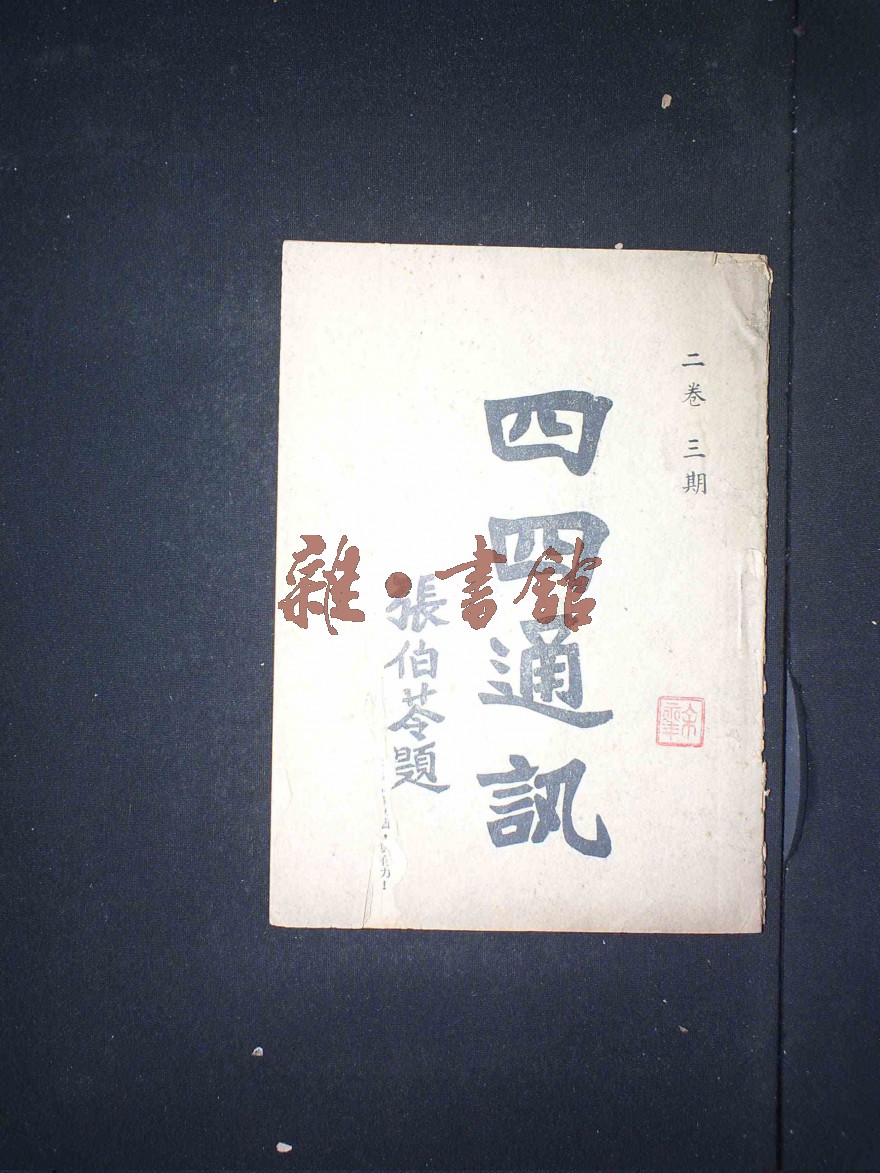 二卷三期
四四通訊
張伯苓題
雜·書館
力!